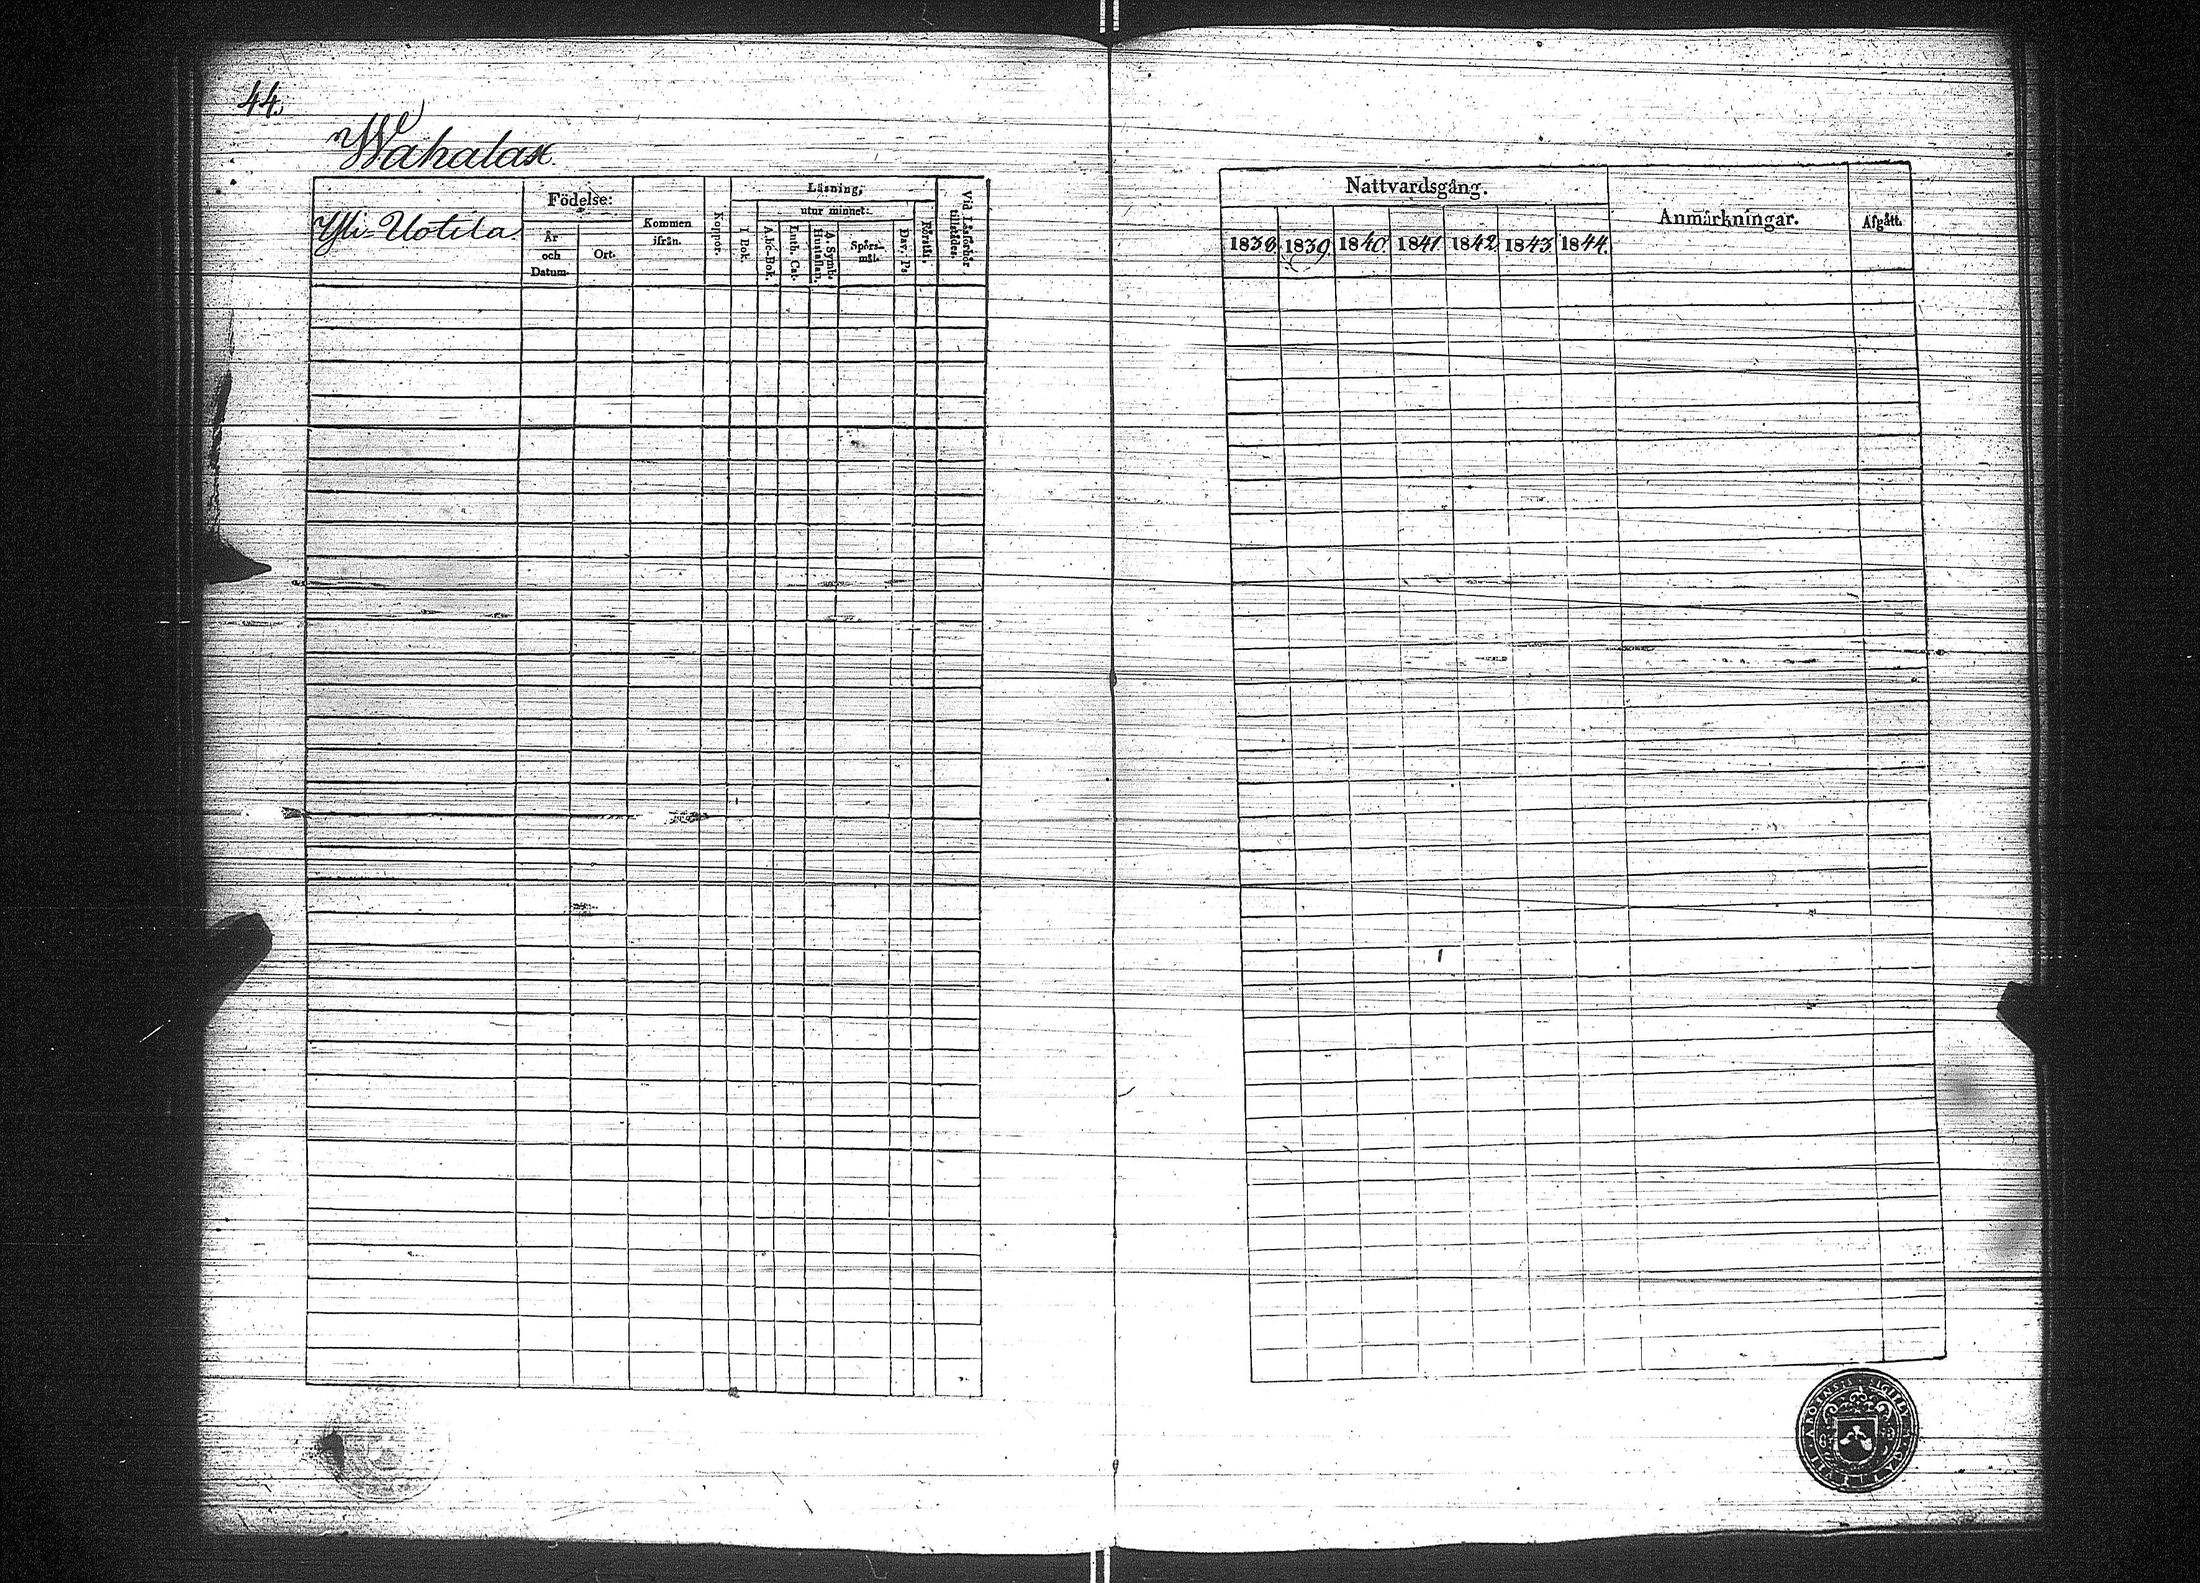 44.
Wahalax
Yli-Uotila.
Födelse:
År
och
Datum.
Ort.
Kommen
ifrån.
Koppor.
Läsning,
utur minnet:
I Bok.
A.b.c.-Bok.
Luth. Cat.
Hustaflan.
A. Symb.
Spörs-
mål.
Dav. Ps
Förstår.
Vid Läsförhör
tillstädes
Nattvardsgång.
1838. 1839. 1840. 1841. 1842. 1843. 1844.
Anmärkningar.
Afgått.